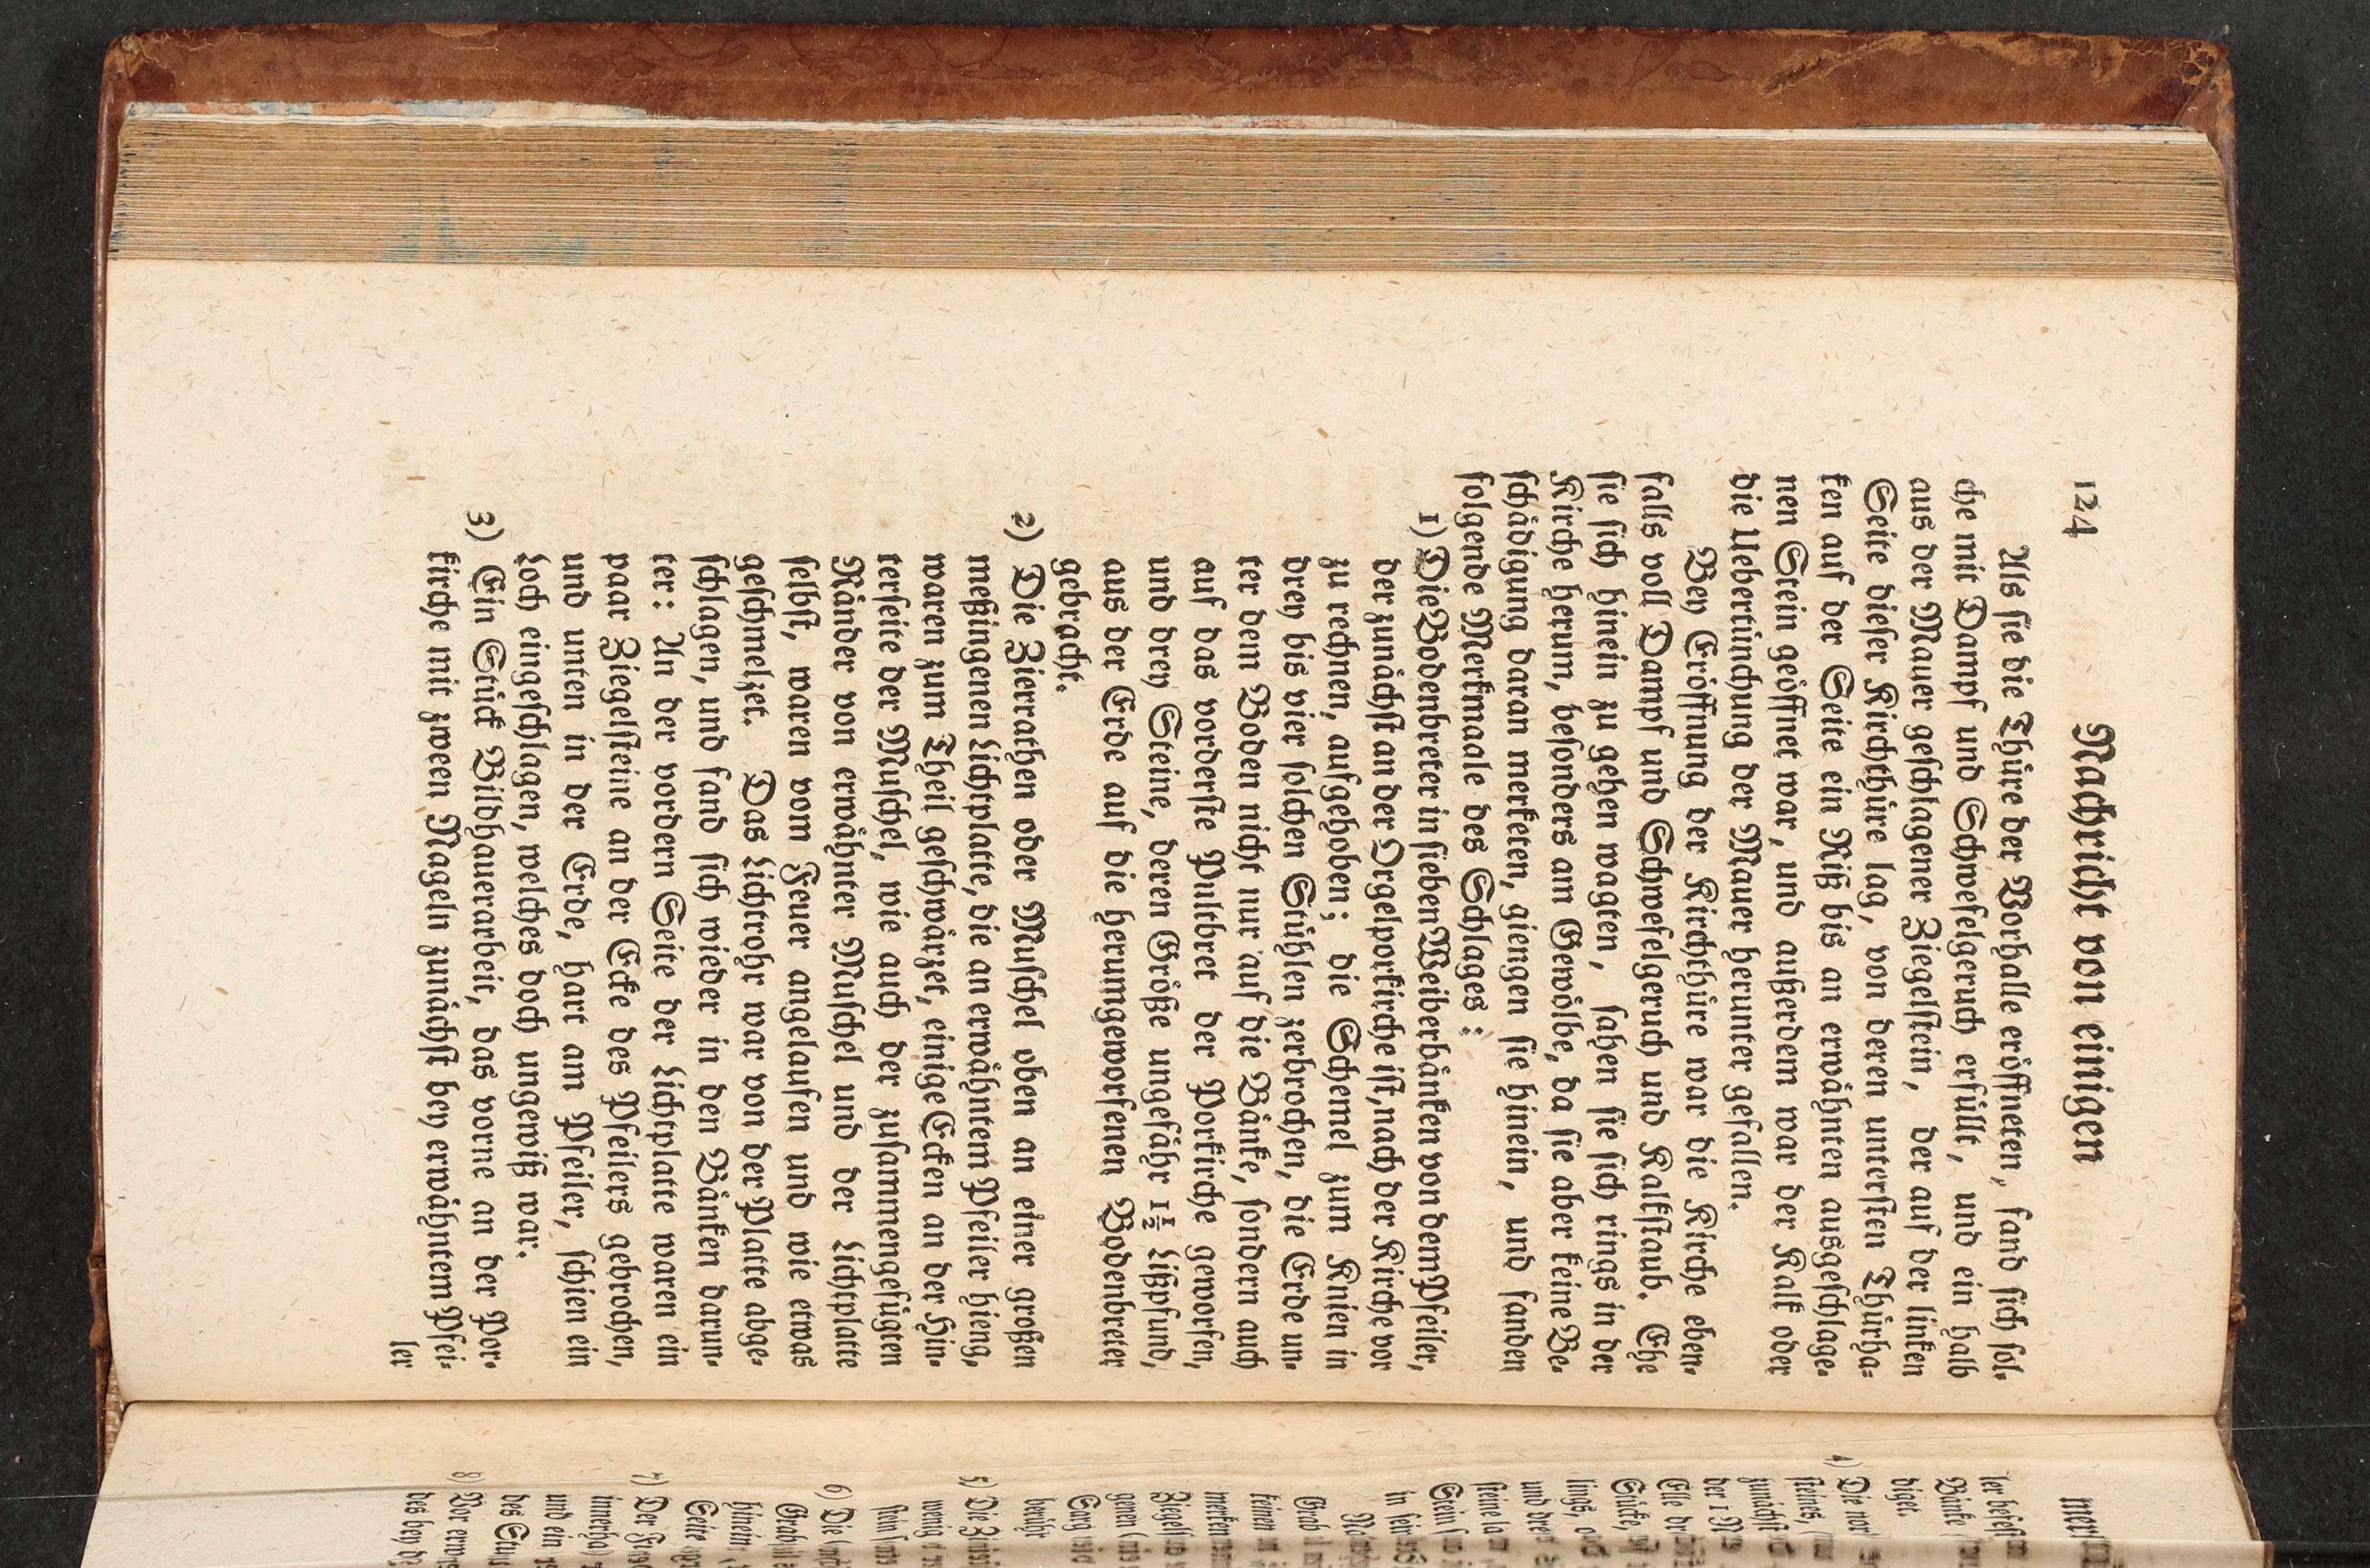 124 Nachricht von einigen
Als ſie die Thüre der Vorhalle eröffneten, fand ſich ſol-
che mit Dampf und Schwefelgeruch erfüllt, und ein halb
aus der Mauer geſchlagener Ziegelſtein, der auf der linken
Seite dieſer Kirchthüre lag, von deren unterſten Thürha-
ken auf der Seite ein Riß bis an erwähnten ausgeſchlage-
nen Stein geöffnet war, und außerdem war der Kalk oder
die Uebertünchung der Mauer herunter gefallen.
Bey Eröffnung der Kirchthüre war die Kirche eben-
falls voll Dampf und Schwefelgeruch und Kalkſtaub. Ehe
ſie ſich hinein zu gehen wagten, ſahen ſie ſich rings in der
Kirche herum, beſonders am Gewölbe, da ſie aber keine Be-
ſchädigung daran merketen, giengen ſie hinein, und fanden
folgende Merkmaale des Schlages:
1) Die Bodenbreter in ſieben Weiberbänken von dem Pfeiler,
der zunächſt an der Orgelporkirche iſt, nach der Kirche vor
zu rechnen, aufgehoben; die Schemel zum Knien in
drey bis vier ſolchen Stühlen zerbrochen, die Erde un-
ter dem Boden nicht nur auf die Bänke, ſondern auch
auf das vorderſte Pultbret der Porkirche geworfen,
und drey Steine, deren Größe ungefähr 1½ Lißpfund,
aus der Erde auf die herumgeworfenen Bodenbreter
gebracht.
2) Die Zierrathen oder Muſchel oben an einer großen
meßingenen Lichtplatte, die an erwähntem Pfeiler hieng,
waren zum Theil geſchwärzet, einige Ecken an der Hin-
terſeite der Muſchel, wie auch der zuſammengefügten
Ränder von erwähnter Muſchel und der Lichtplatte
ſelbſt, waren vom Feuer angelaufen und wie etwas
geſchmelzet. Das Lichtrohr war von der Platte abge-
ſchlagen, und fand ſich wieder in den Bänken darun-
ter: An der vordern Seite der Lichtplatte waren ein
paar Ziegelſteine an der Ecke des Pfeilers gebrochen,
und unten in der Erde, hart am Pfeiler, ſchien ein
Loch eingeſchlagen, welches doch ungewiß war.
3) Ein Stück Bildhauerarbeit, das vorne an der Por-
kirche mit zween Nageln zunächſt bey erwähntem Pfei-
ler
ler befeſ
Bänke
diget.
4) Die
ſteines
zunächſt
der 1
Elle
Stücke,
lings,
und
Stein
in
Grab
keinen
merken
Sarg
Ziegel
genen
5) Die
wenig
6) Die
Grab
hinein
Seite
7) Der
innerha
und ein
des
8) Vor
des bey